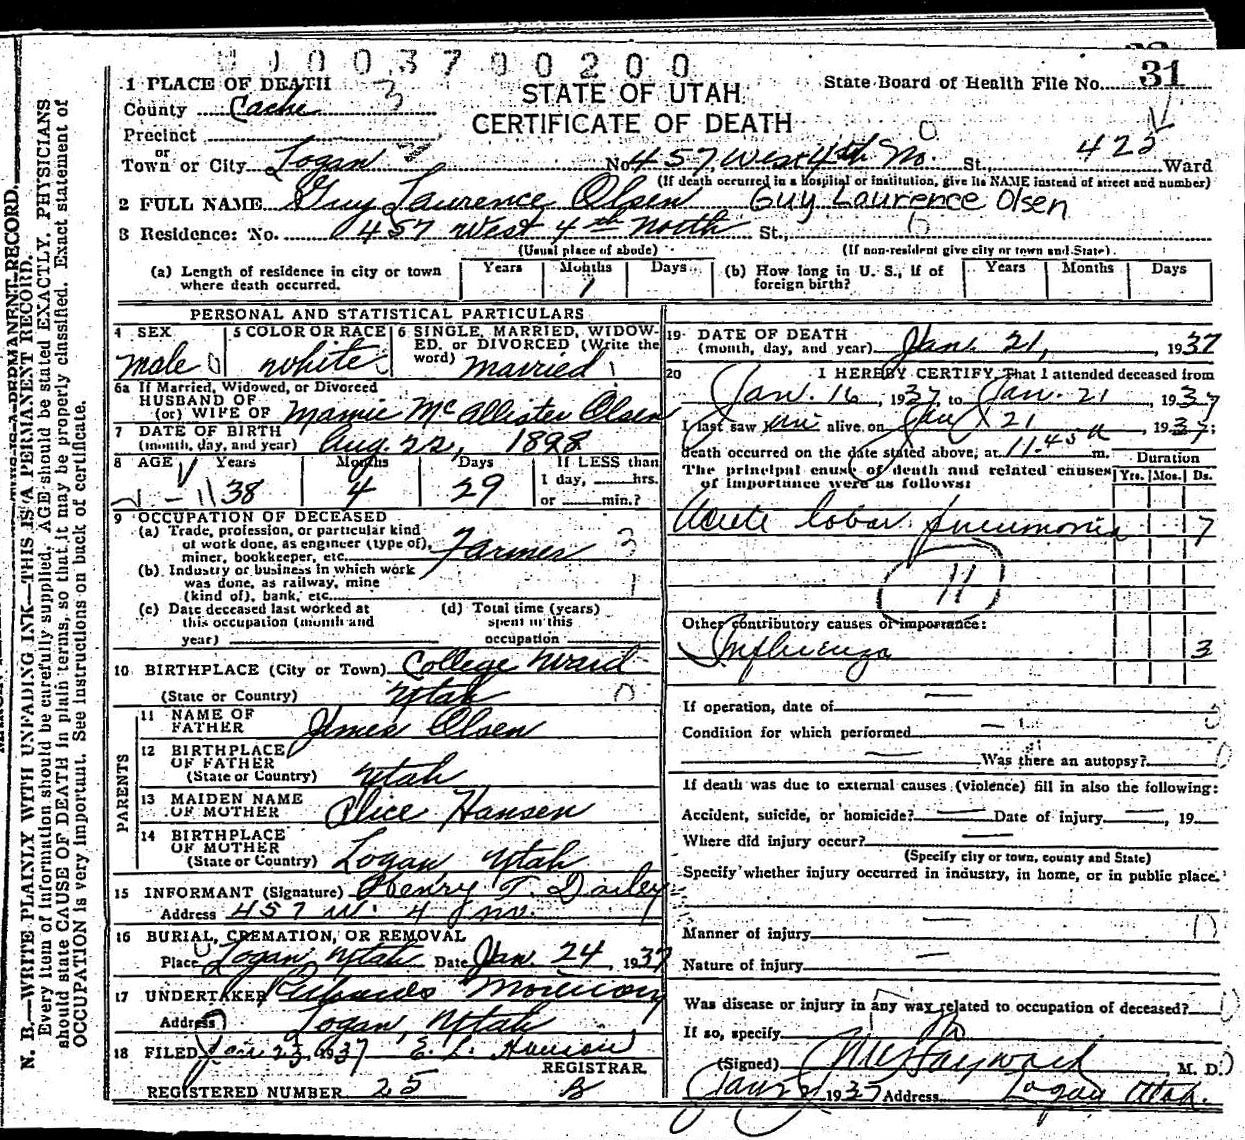 0 0 0 3 7 0 0 2 0 0
1 PLACE OF DEATH
County Cache 3
Precinct
or
Town or City Logan
STATE OF UTAH
CERTIFICATE OF DEATH
State Board of Health File No. 31
No. 457, West 4th No. St., 422 Ward
(If death occurred in a hospital or institution, give its NAME instead of street and number)
2 FULL NAME Guy Laurence Olsen Guy Laurence Olsen
3 Residence: No. 457 West 4th North St.,
(Usual place of abode) (If non-resident give city or town and State)
(a) Length of residence in city or town where death occurred. Years Months 1 Days
(b) How long in U. S., if of foreign birth? Years Months Days
PERSONAL AND STATISTICAL PARTICULARS
4 SEX male
5 COLOR OR RACE white
6 SINGLE, MARRIED, WIDOW-
ED, or DIVORCED (Write the
word) married
6a If Married, Widowed, or Divorced
HUSBAND OF
(or) WIFE OF Mamie McAllister Olsen
7 DATE OF BIRTH
(month, day, and year) Aug. 22, 1898
8 AGE Years 38 Months 4 Days 29
If LESS than
1 day, hrs.
or min.?
9 OCCUPATION OF DECEASED
(a) Trade, profession, or particular kind
of work done, as engineer (type of),
miner, bookkeeper, etc. Farmer 3
(b) Industry or business in which work
was done, as railway, mine
(kind of), bank, etc. 1
(c) Date deceased last worked at
this occupation (month and
year)
(d) Total time (years)
spent in this
occupation
10 BIRTHPLACE (City or Town) College Ward
(State or Country) Utah 0
PARENTS
11 NAME OF
FATHER James Olsen
12 BIRTHPLACE
OF FATHER
(State or Country) Utah
13 MAIDEN NAME
OF MOTHER Alice Hansen
14 BIRTHPLACE
OF MOTHER
(State or Country) Logan Utah
15 INFORMANT (Signature) Henry T. Dailey
Address 457 W. 4 no.
16 BURIAL, CREMATION, OR REMOVAL
Place Logan, Utah Date Jan. 24, 1937
17 UNDERTAKER
Address Logan, Utah
18 FILED Jan 23, 1937 E. L. Hanson
REGISTRAR
REGISTERED NUMBER 25 B
19 DATE OF DEATH
(month, day, and year) Jan. 21, 1937
20 I HEREBY CERTIFY, That I attended deceased from
Jan. 16, 1937, to Jan. 21 1937
I last saw him alive on Jan 21 1937;
death occurred on the date stated above, at 11.45 a m.
The principal cause of death and related causes
of importance were as follows:
Duration
Yrs. Mos. Ds.
Acute lobar pneumonia 7
11
Other contributory causes of importance:
Influenza 3
If operation, date of
Condition for which performed
Was there an autopsy?
If death was due to external causes (violence) fill in also the following:
Accident, suicide, or homicide? Date of injury , 19
Where did injury occur?
(Specify city or town, county and State)
Specify whether injury occurred in industry, in home, or in public place.
Manner of injury
Nature of injury
Was disease or injury in any way related to occupation of deceased?
If so, specify No
(Signed) Hayward, M. D.
1937 Address Logan Utah.
N. B.—WRITE PLAINLY WITH UNFADING INK—THIS IS A PERMANENT RECORD.
Every item of information should be carefully supplied. AGE should be stated EXACTLY. PHYSICIANS
should state CAUSE OF DEATH in plain terms, so that it may be properly classified. Exact statement of
OCCUPATION is very important. See instructions on back of certificate.